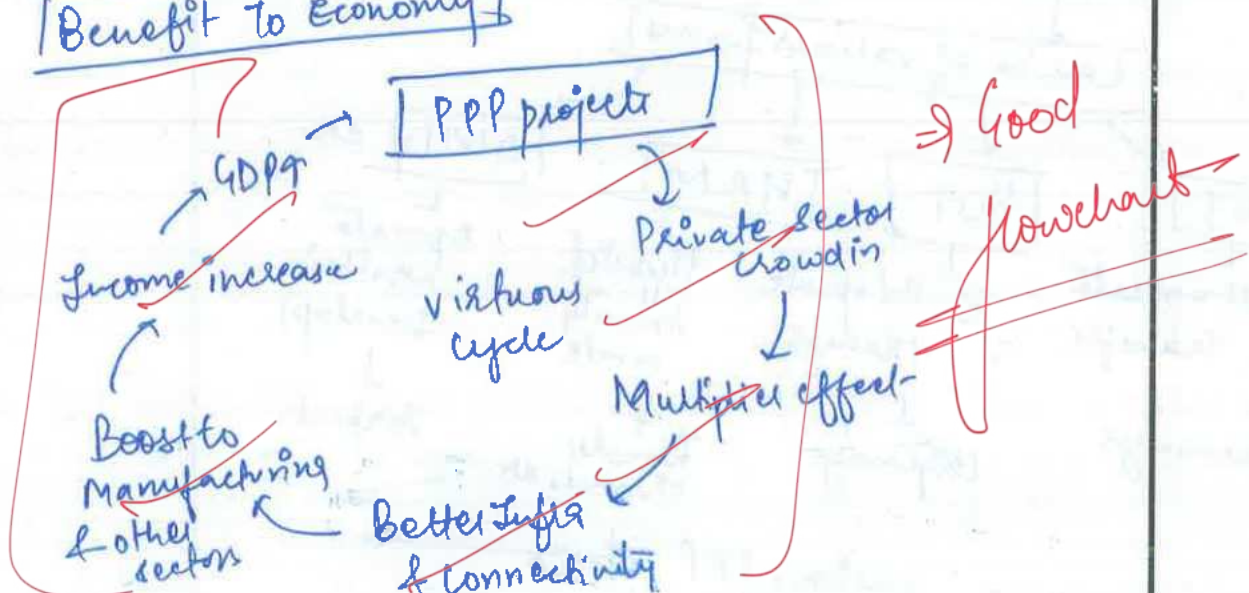 Benefit To Economy
PPP projects
Private Sector
crowdin
Multiplier effect
Better Infra
& connectivity
Boost to
Manufacturing
& other
sectors
Income increase
GDP↑
Virtuous
cycle
⇒ Good
flowchart